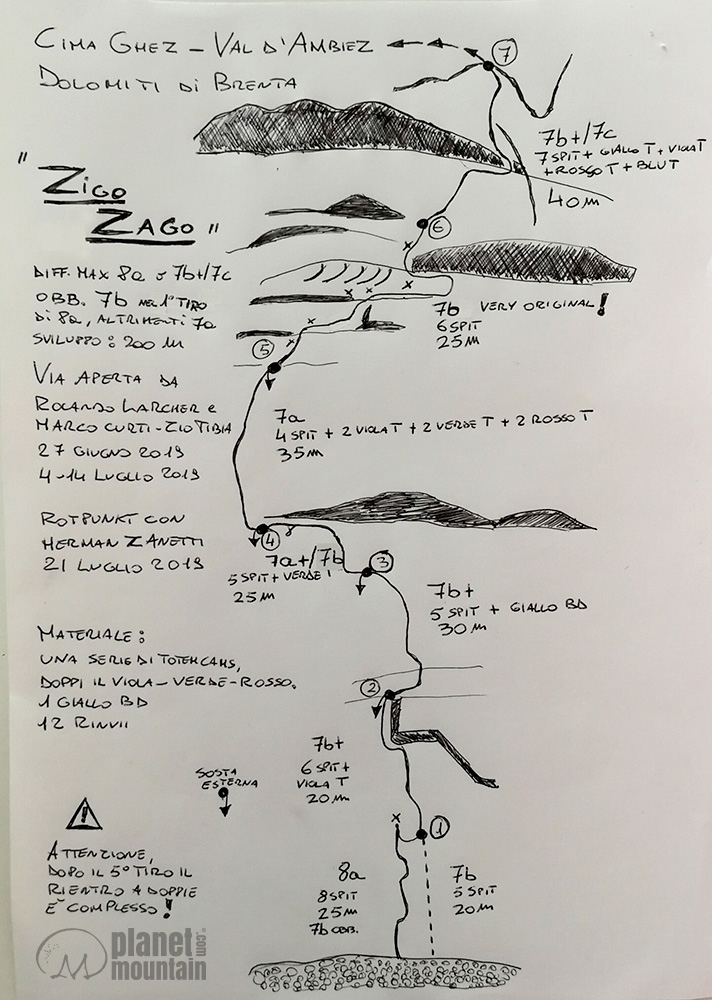 CIMA GHEZ – VAL D'AMBIEZ
DOLOMITI DI BRENTA
"ZIGO
ZAGO"
DIFF. MAX 8a o 7b+/7c
OBB. 7b NEL 1° TIRO
DI 8a, ALTRIMENTI 7a
SVILUPPO: 200 M
VIA APERTA DA
ROLANDO LARCHER e
MARCO CURTI - ZIO TIBIA
27 GIUGNO 2019
4-14 LUGLIO 2019
ROTPUNKT CON
HERMAN ZANETTI
21 LUGLIO 2019
MATERIALE:
UNA SERIE DI TOTEM CAMS,
DOPPI IL VIOLA-VERDE-ROSSO.
1 GIALLO BD
12 RINVII
SOSTA
ESTERNA
ATTENZIONE,
DOPO IL 5° TIRO IL
RIENTRO A DOPPIE
E' COMPLESSO!
7
7b+/7c
7 SPIT + GIALLO T + VIOLA T
+ ROSSO T + BLU T
40 M
6
7b VERY ORIGINAL!
6 SPIT
25 M
5
7a
4 SPIT + 2 VIOLA T + 2 VERDE T + 2 ROSSO T
35 M
4
7a+/7b
5 SPIT + VERDE
25 M
3
7b+
5 SPIT + GIALLO BD
30 M
2
7b+
6 SPIT +
VIOLA T
20 M
1
8a
8 SPIT
25 M
7b OBB.
7b
5 SPIT
20 M
planet
mountain
.com